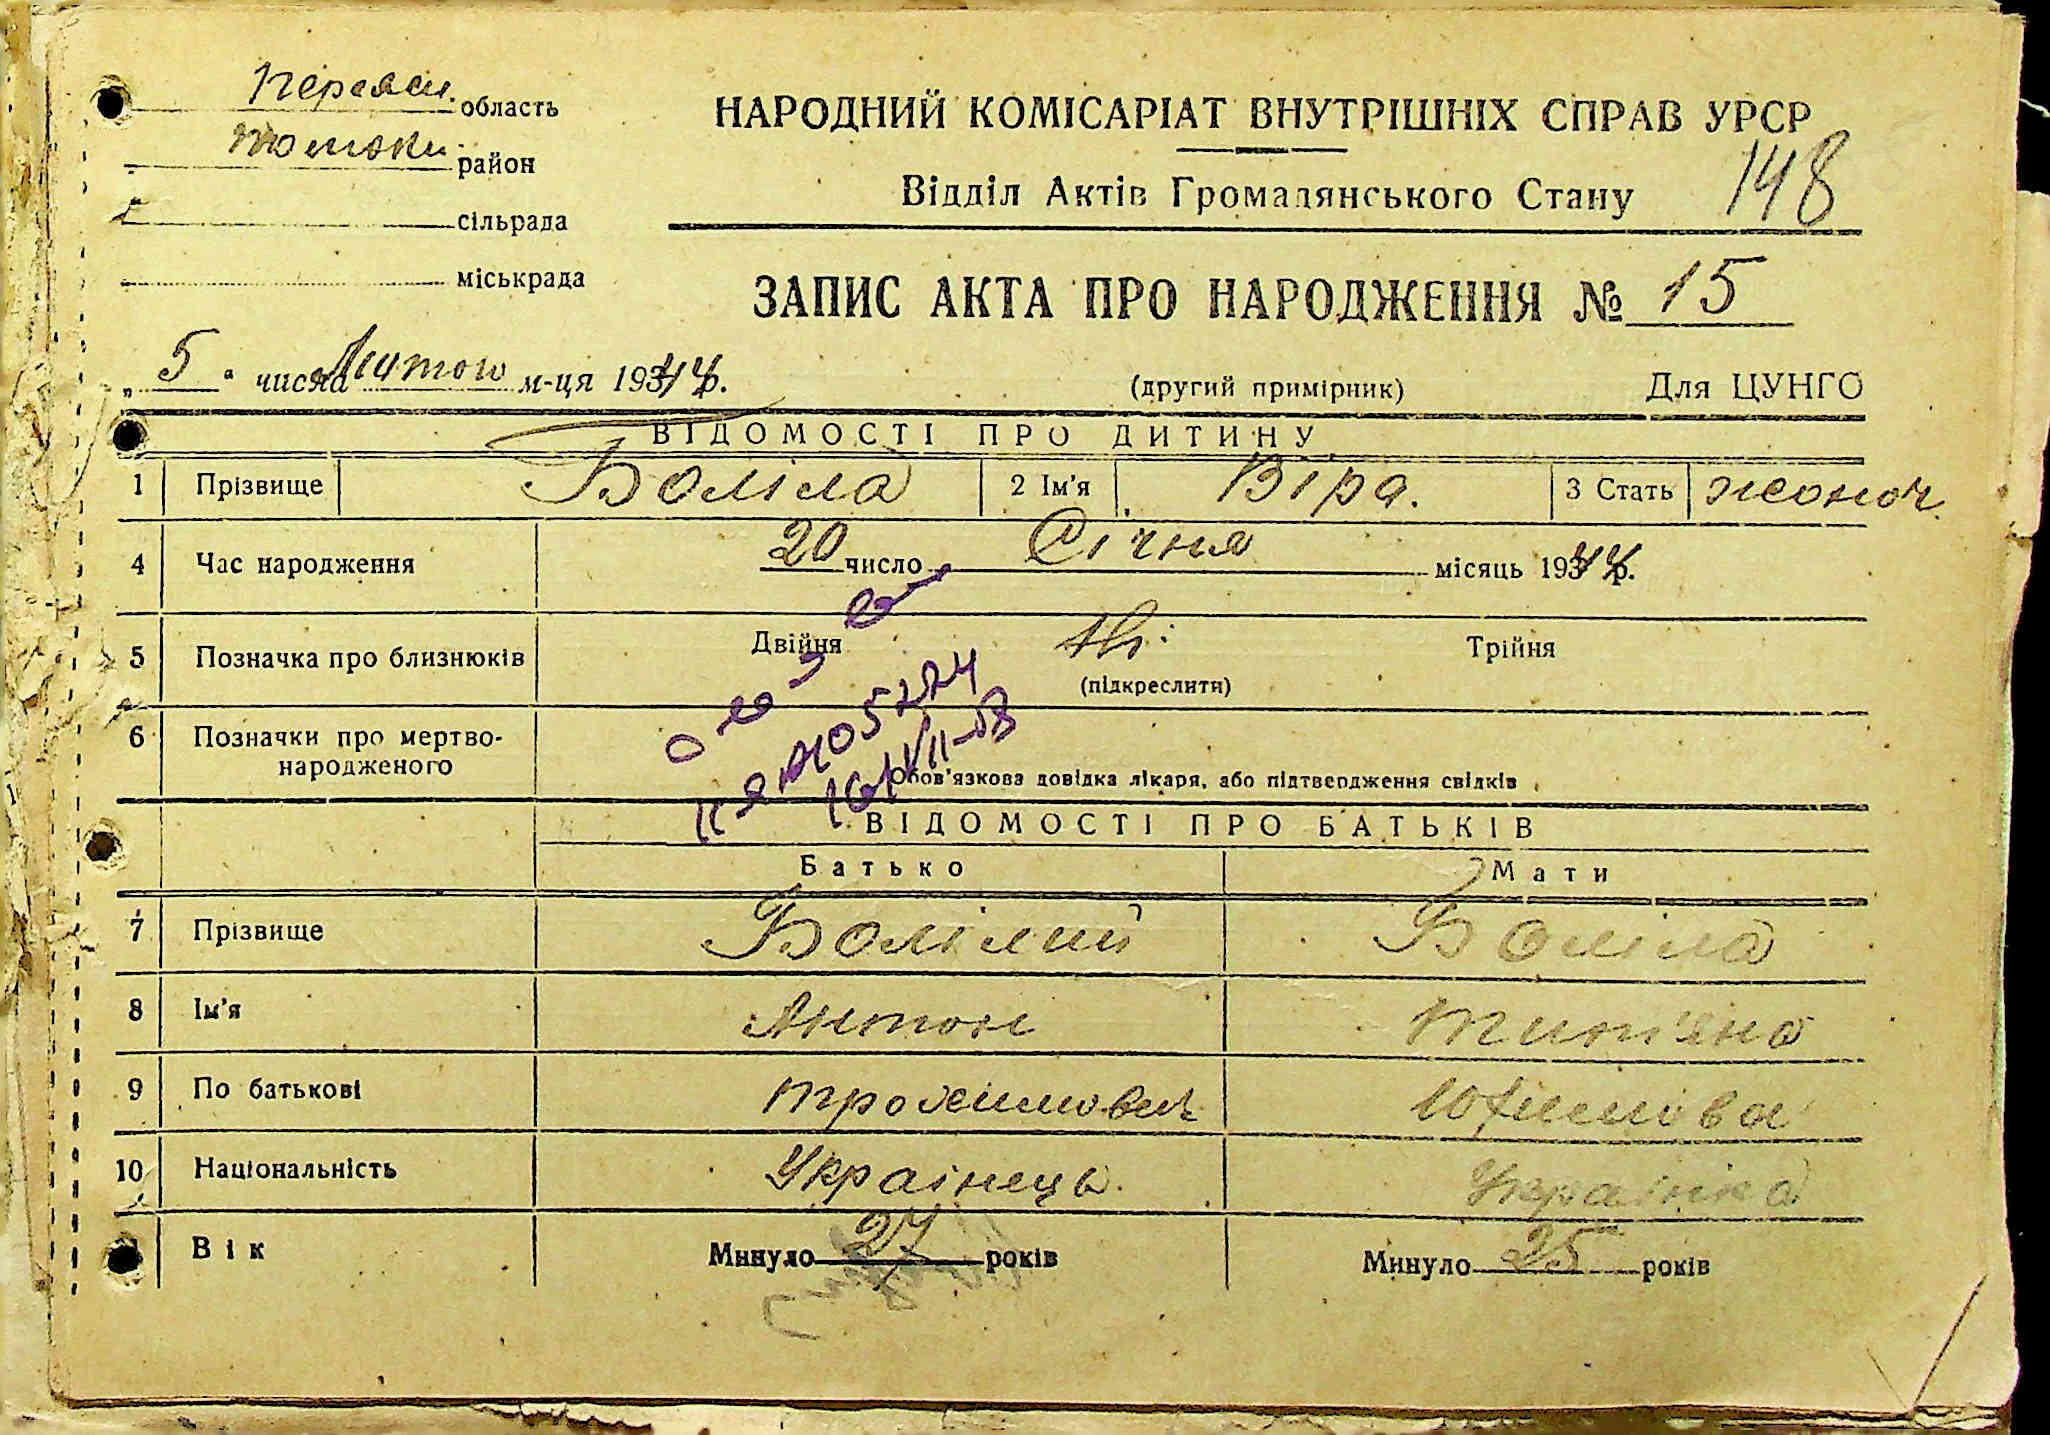 область
район
сільрада
міськрада
НАРОДНИЙ КОМІСАРІАТ ВНУТРІШНІХ СПРАВ УРСР
Відділ Актів Громадянського Стану 148
ЗАПИС АКТА ПРО НАРОДЖЕННЯ № 15
„5" числа Лютого м-ця 1944 р. (другий примірник) Для ЦУНГО
ВІДОМОСТІ ПРО ДИТИНУ
1 Прізвище Боліла 2 Ім'я Віра. 3 Стать жоноч.
4 Час народження 20 число Січня місяць 1944 р.
5 Позначка про близнюків Двійня Ні Трійня
(підкреслити)
6 Позначки про мертво-
народженого
Обов'язкова довідка лікаря, або підтвердження свідків
ВІДОМОСТІ ПРО БАТЬКІВ
Батько Мати
7 Прізвище Болілий Боліла
8 Ім'я Антон Тит'яна
9 По батькові Трохимович Юхимова
10 Національність Українець Українка
Вік Минуло 27 років Минуло 25 років